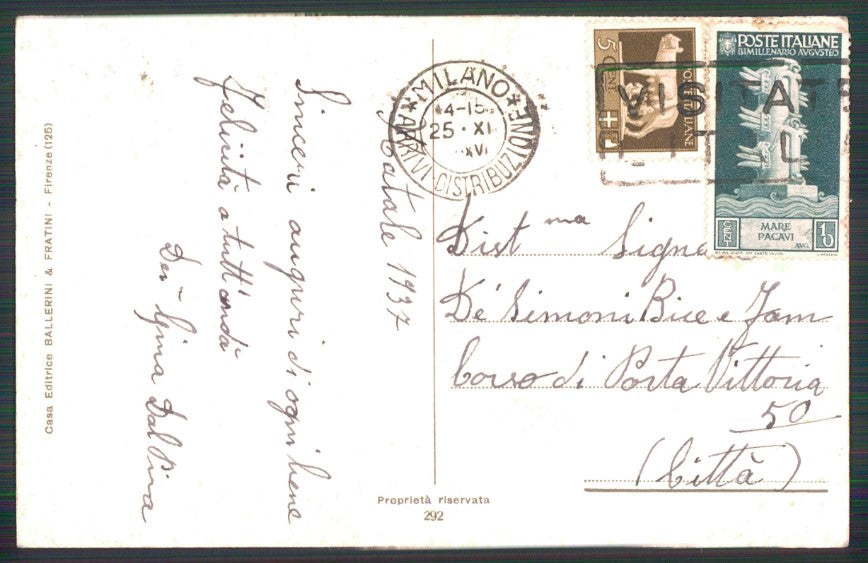 Casa Editrice BALLERINI & FRATINI - Firenze (125)
Natale 1937
Sinceri auguri di ogni bene
felicità a tutt'onda
Dev Gina Dal Pina
MILANO
4-15
25·XI
XVI
ARRIVI·DISTRIBUZIONE
5 CENT
POSTE ITALIANE
VISITATE
POSTE ITALIANE
BIMILLENARIO AVGVSTEO
MARE
PACAVI
AVG.
CENT 10
Dist ma Signa
De' Simoni Bice e Fam
Corso di Porta Vittoria
50
(Città)
Proprietà riservata
292